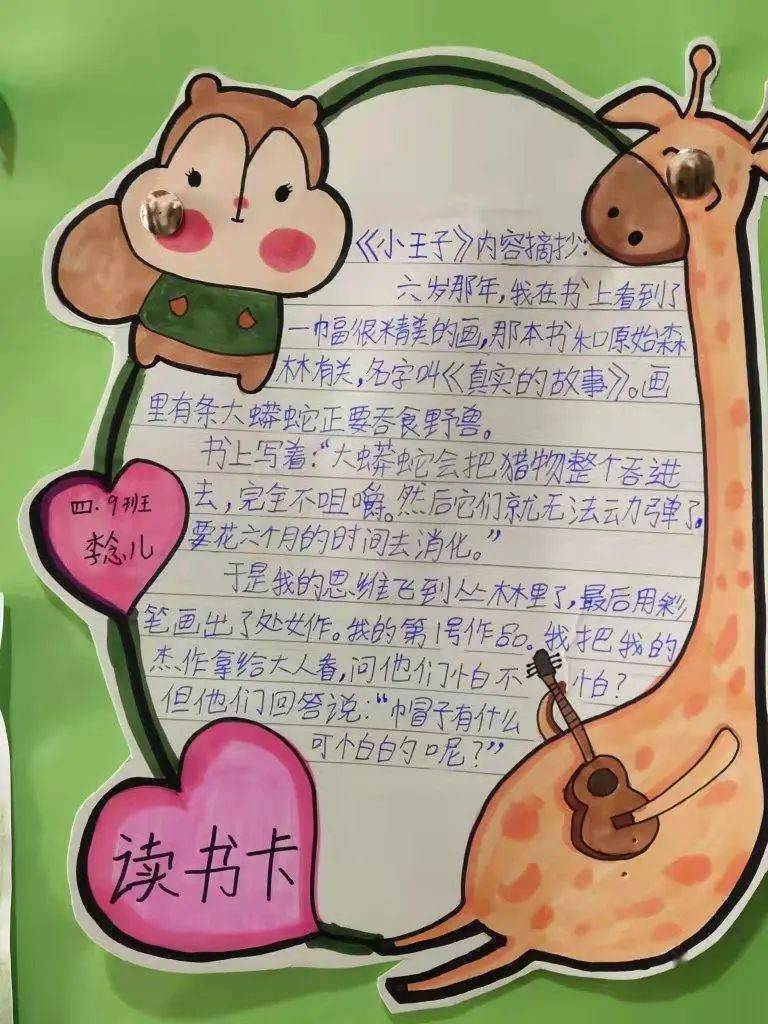 《小王子》内容摘抄:
六岁那年,我在书上看到了
一幅很精美的画,那本书和原始森
林有关,名字叫《真实的故事》。画
里有条大蟒蛇正要吞食野兽。
书上写着:“大蟒蛇会把猎物整个吞进
去,完全不咀嚼。然后它们就无法动弹了。
要花六个月的时间去消化。”
于是我的思维飞到丛林里了,最后用彩
笔画出了处女作。我的第1号作品。我把我的
杰作拿给大人看,问他们怕不怕?
但他们回答说:“帽子有什么
可怕的呢?”
四.9班
李念儿
读书卡